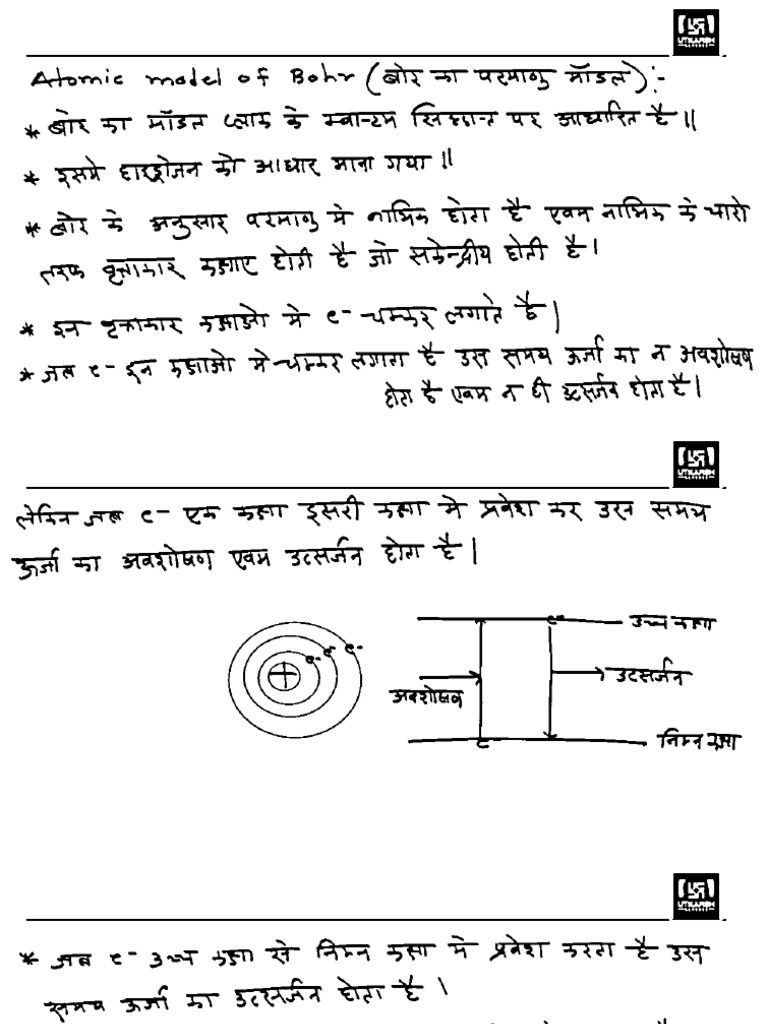 UTKARSH
Atomic model of Bohr (बोर का परमाणु मॉडल):-
* बोर का मॉडल प्लांक के क्वान्टम सिद्धान्त पर आधारित है॥
* इसमे हाइड्रोजन को आधार माना गया॥
* बोर के अनुसार परमाणु मे नाभिक होता है एवम नाभिक के चारो
तरफ वृत्ताकार कक्षाए होती है जो सकेन्द्रीय होती है।
* इन वृत्ताकार कक्षाओ मे e- चक्कर लगाते है।
* जब e- इन कक्षाओ मे चक्कर लगाता है उस समय ऊर्जा का न अवशोषण
होता है एवम न ही उत्सर्जन होता है।
UTKARSH
लेकिन जब e- एक कक्षा दुसरी कक्षा मे प्रवेश कर उस समय
ऊर्जा का अवशोषण एवम उत्सर्जन होता है।
e- e- e-
+
e- उच्च कक्षा
अवशोषण
उत्सर्जन
e- निम्न कक्षा
UTKARSH
* जब e- उच्च कक्षा से निम्न कक्षा मे प्रवेश करता है उस
समय ऊर्जा का उत्सर्जन होता है।